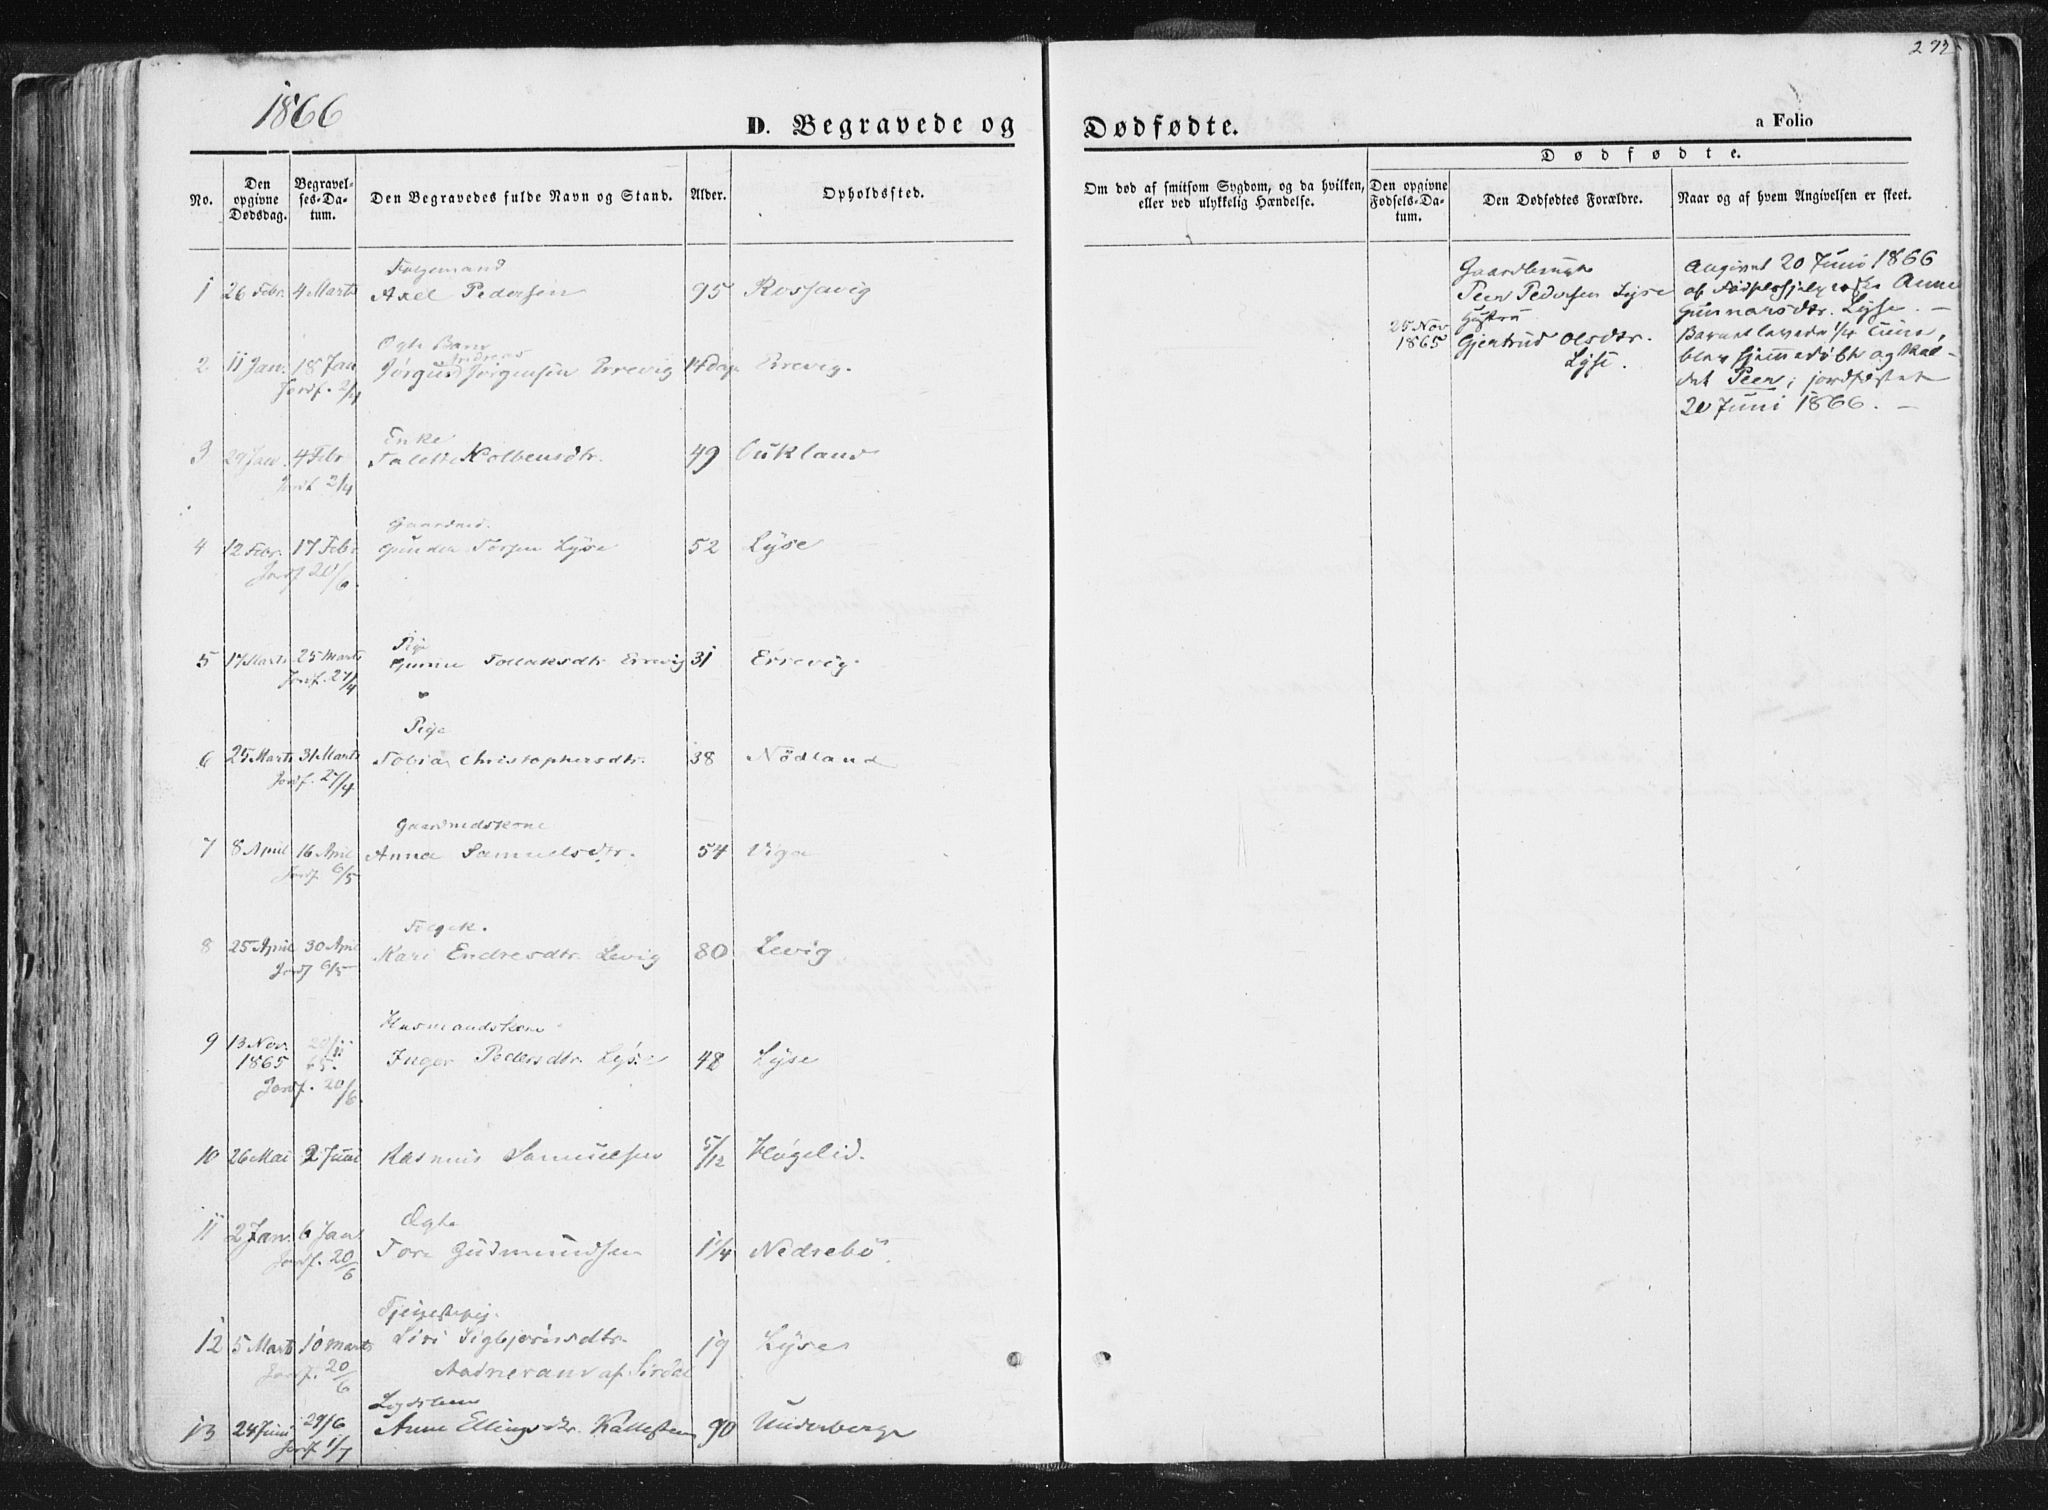 1866
D. Begravede og Dødfødte.
a Folio
No.
Den opgivne Dødsdag.
Begravelses-Datum.
Den Begravedes fulde Navn og Stand.
Alder.
Opholdssted.
Om død af smitsom Sygdom, og da hvilken, eller ved ulykkelig Hændelse.
Dødfødte.
Den opgivne Fødsels-Datum.
Den Dødfødtes Forældre.
Naar og af hvem Angivelsen er skeet.
1 26 Febr. 4 Marts Axel Pedersen 95 Rossavig
Ægte Barn
Andreas
2 11 Jan. 18 Jan Jørgen Errevig 14 dag Errevig.
Jordf. 2/4
Enke
3 29 Jan. 4 Febr Kolbensdtr. 49 Oukland
Jordf. 2/4
Gaardmd.
4 12 Febr. 17 Febr Lyse 52 Lyse
Jordf 20/6
Pige
5 17 Marts 25 Marts Tollaksdtr Errevig 31 Errevig.
Jordf. 27/4
Pige
6 25 Marts 31 Marts Tobia Christophersdtr. 38 Nödland
Jordf. 27/4
Gaardmdskone
7 8 April 16 April Anna Samuelsdtr. 54 Viga
Jordf 6/5
8 25 April 30 April Kari Endresdtr. Levig 80 Levig
Jordf 6/5
Husmandskone
9 13 Nov. 1865 20/11 65. Inger Pedersdtr. Lyse 48 Lyse
Jordf. 20/6
10 26 Mai 2 Juni Rasmus Samuelsen 5/12 Högelid.
Ægte
11 2 Jan. 6 Jan Tore Gudmundsen 1 1/4 Nedrebö.
Jordf. 20/6
12 5 Marts 10 Marts Siri Sigbjörnsdtr. 19 Lyse
Jordf. 20/6
af Sirdal
13 24 Juni 29/6 Anne Ellingsdtr. Kallesten 90 Underberge
Jordf 1/7
25 Nov 1865
Peer Pedersen Lyse
Hustru
Gjertrud Olsdtr.
Lyse.
Angivet 20 Juni 1866
Anne
Gunnarsdtr. Lyse. —
Barnet levede 1/4 Time,
blev hjemmedøbt og kal-
det Peer; jordfæstet
20 Juni 1866. —